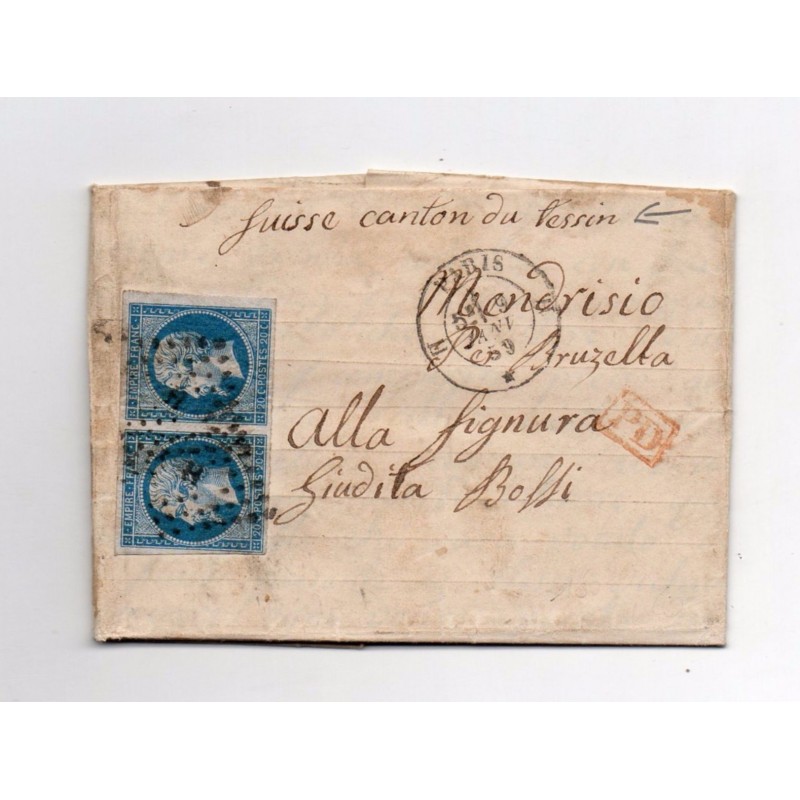 Suisse canton du Tessin
PARIS
Mendrisio
9
JANV
59
H
Per Bruzella
Alla Signura
PD
Giudita Bossi
EMPIRE FRANC
20 C POSTES 20 C
EMPIRE FRANC
20 C POSTES 20 C